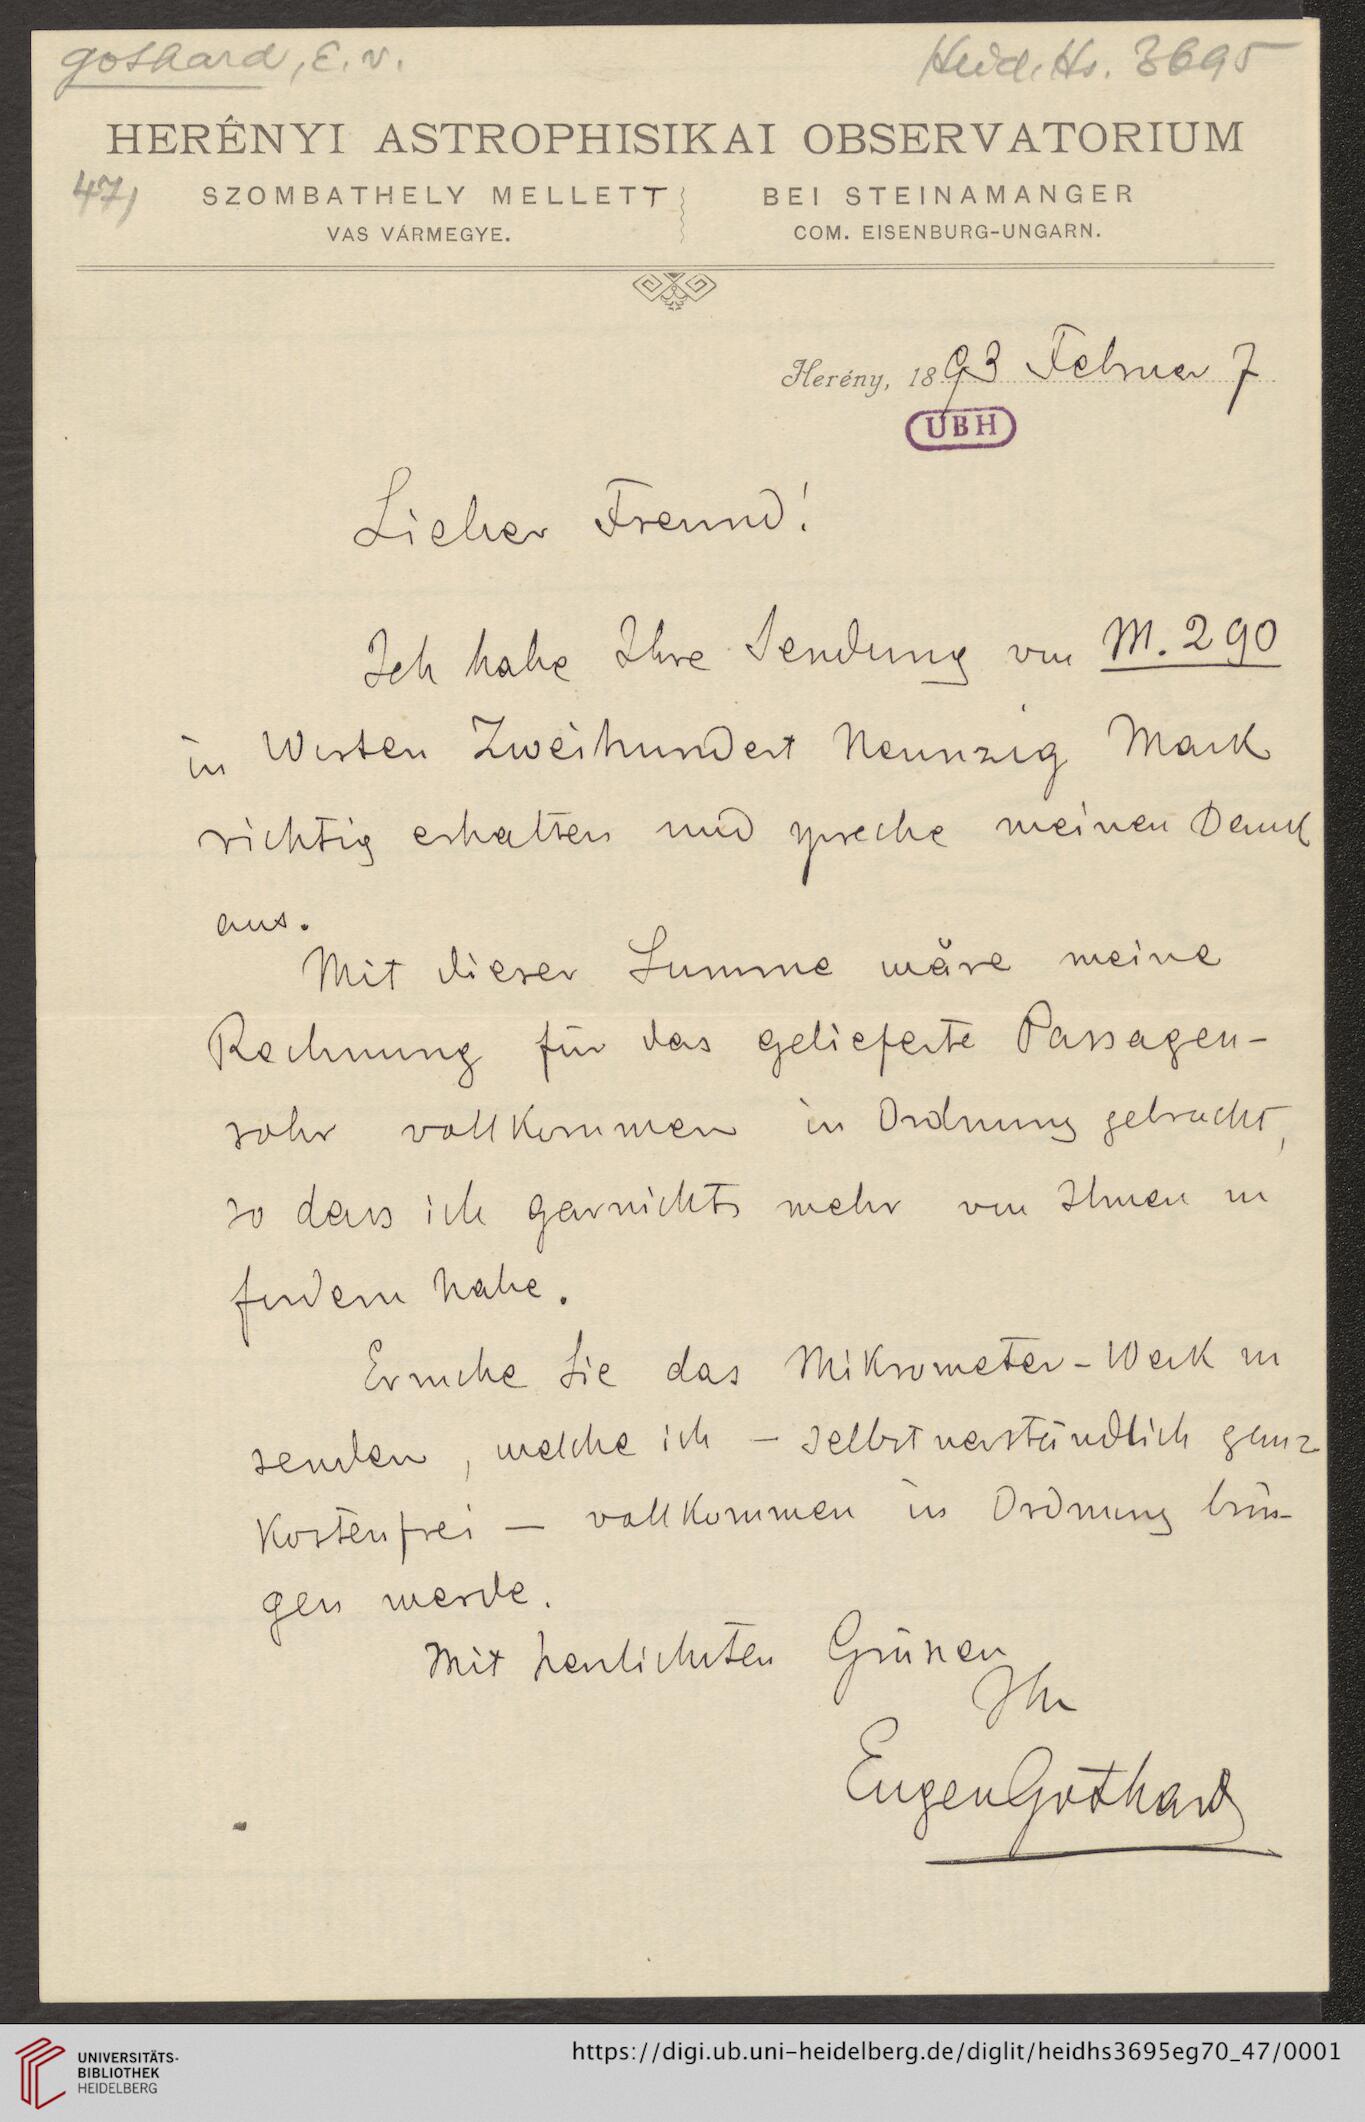 Gothard, E. v.
Heid. Hs. 3695
HERÊNYI ASTROPHISIKAI OBSERVATORIUM
47,
SZOMBATHELY MELLETT
VAS VÁRMEGYE.
BEI STEINAMANGER
COM. EISENBURG-UNGARN.
Herény, 1893 Februar 7
UBH
Lieber Freund!
Ich habe Ihre Sendung von M. 290
in Worten Zweihundert Neunzig Mark
richtig erhalten und spreche meinen Dank
aus.
Mit dieser Summe wäre meine
Rechnung für das gelieferte Passagen-
rohr vollkommen in Ordnung gebracht,
so dass ich garnichts mehr von Ihnen zu
fordern habe.
Ersuche Sie das Mikrometer-Werk zu
senden, welche ich – selbstverständlich ganz
Kostenfrei – vollkommen in Ordnung brin-
gen werde.
Mit herzlichsten Grüssen
Ihr
Eugen Gothard
UNIVERSITÄTS-
BIBLIOTHEK
HEIDELBERG
https://digi.ub.uni-heidelberg.de/diglit/heidhs3695eg70_47/0001